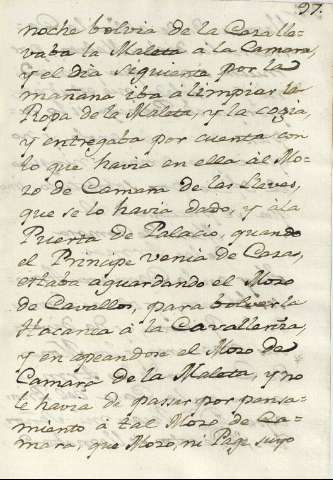 97.
noche bolvia de la Caza lle=
vaba la Maleta à la Camara,
y el dia siguiente por la
mañana iba à limpiar la
Ropa de la Maleta, y la cogia,
y entregaba por cuenta con
lo que havia en ella al Mo=
zo de Camara de las llaves,
que se lo havia dado, y à la
Puerta de Palacio, quando
el Principe venia de Caza,
estaba aguardando el Mozo
de Cavallos, para bolver la
Hacanea à la Cavalleriza,
y en apeandose el Mozo de
Camara de la Maleta, y no
le havia de passar por pensa=
miento à tal Mozo de Ca=
mara, que Mozo, ni Page suyo